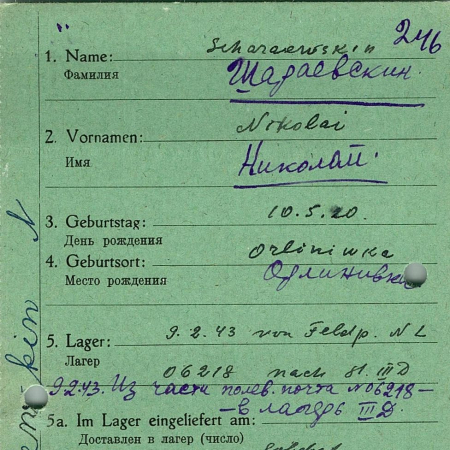 246
1. Name: Scharaewskin
Фамилия Шараевскин
2. Vornamen: Nikolai
Имя Николай
3. Geburtstag: 10.5.20.
День рождения
4. Geburtsort: Orliniwka
Место рождения Орлинивка
5. Lager: 9.2.43 von Feldp. NL
Лагер 06218 nach St. III D
9.2.43. Из части полев. почта N 06218 –
– в лагерь III D.
5a. Im Lager eingeliefert am:
Доставлен в лагер (число)